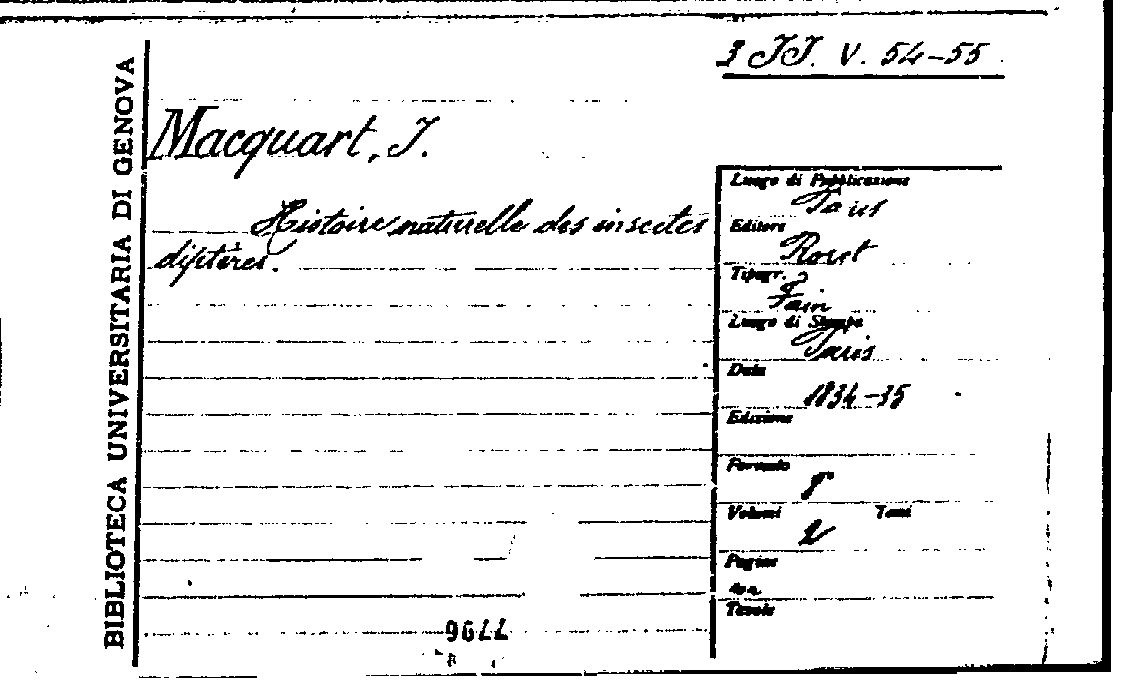 3 JJ. V. 54-55
BIBLIOTECA UNIVERSITARIA DI GENOVA
Macquart, J.
Histoire naturelle des insectes
diptères.
Luogo di Pubblicazione
Paris
Editore
Roret
Tipogr.
Fain
Luogo di Stampa
Paris
Data
1834-35
Edizione
Formato
8
Volumi Tomi
2
Pagine
Tavole